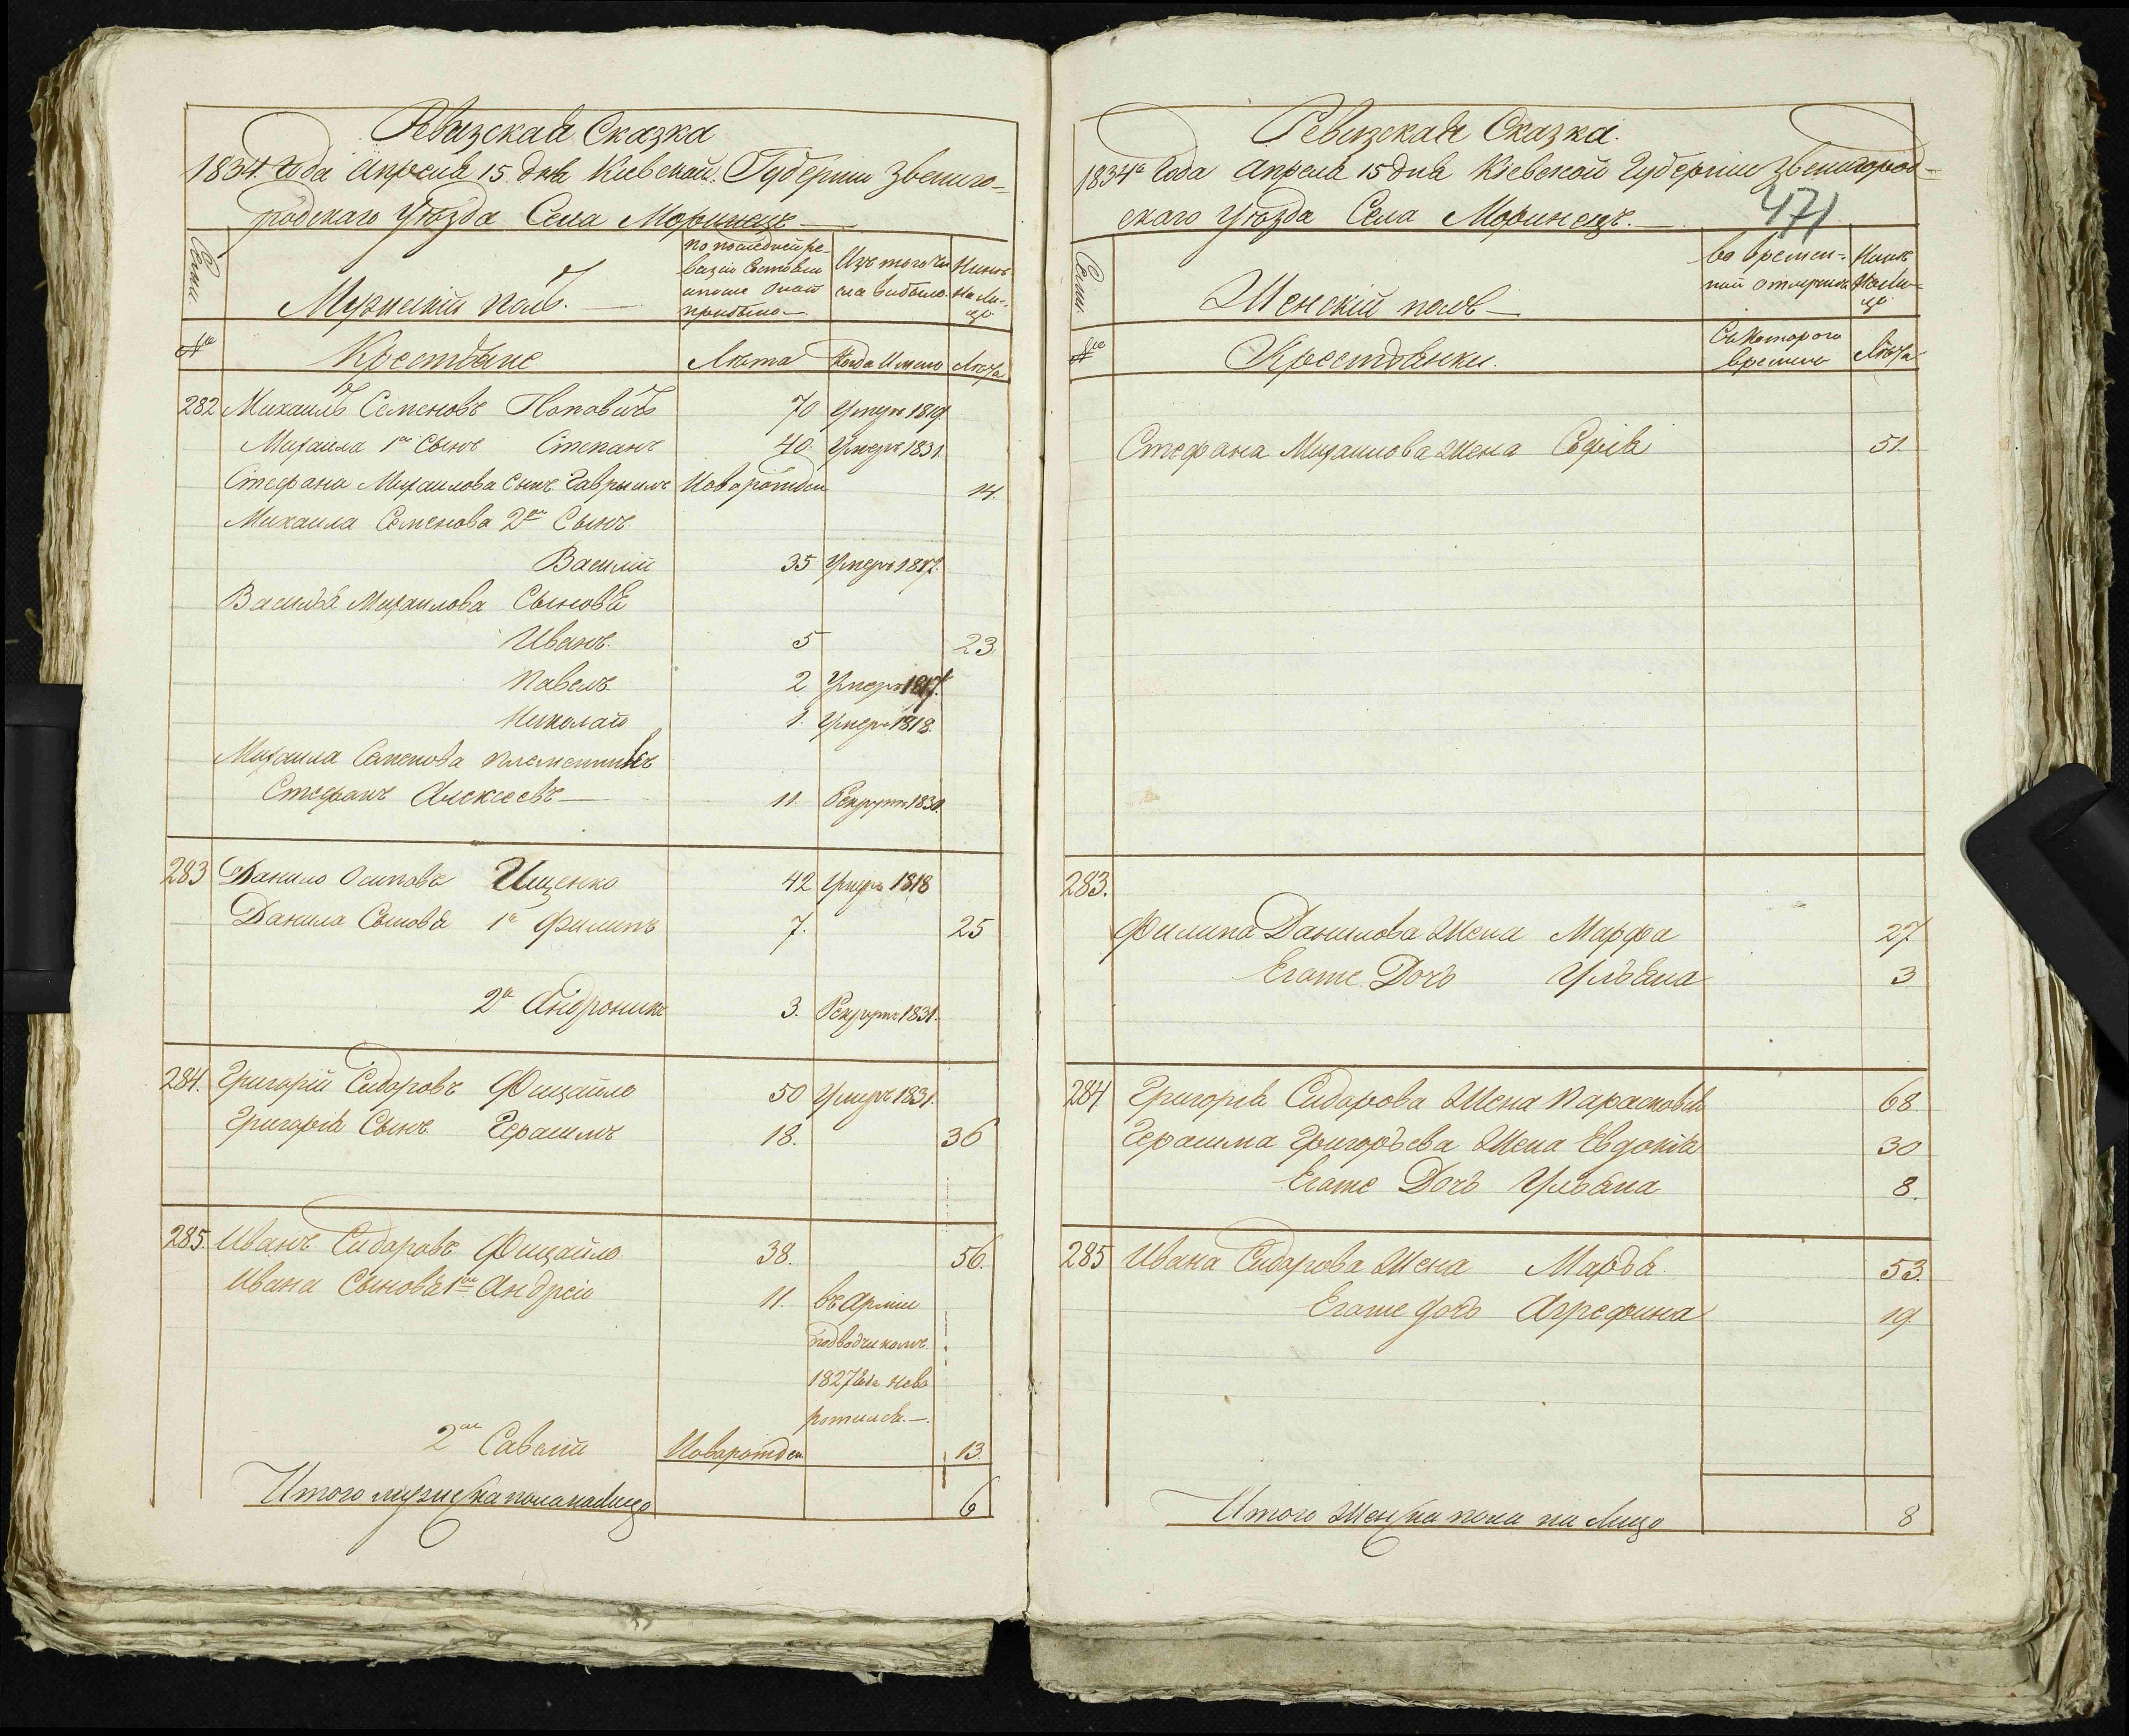 Ревизская Сказка
1834 года апреля 15 дня Киевской Губернии Звениго-
родскаго Уюзда Села Моринецъ
Семи
Мужеский полъ.
По последней ре-
визии состояло
и после оной
прибыло
Изъ того чи
сла выбыло
Ныне
на ли-
цо
№
Крестьяне
Люта
Когда имено
Люта
282 Михаилъ Семеновъ Поповичъ 70 Умеръ 1819
Михаила 1й Сынъ Степанъ 40 Умеръ 1831
Стефана Михаилова Сынъ Гаврыилъ Новорожден 14
Михаила Семенова 2й Сынъ
Василий 35 Умеръ 1817
Василья Михаилова Сыновья
Иванъ 5 23
Павелъ 2 Умеръ 1817
Николай 1 Умеръ 1818
Михаила Семенова племенникъ
Стефанъ Алексеевъ 11 Рекрутъ 1830
283 Данило Осиповъ Ищенко 42 Умеръ 1818
Данила Сыновья 1й Филипъ 7. 25
2й Андроникъ 3. Рекрутъ 1831
284. Григорий Сидоровъ Фищайло 50 Умеръ 1831
Григория Сынъ Герасимъ 18. 36
285. Иванъ Сидоровъ Фищайло 38. 56.
Ивана Сыновья 1й Андрей 11. въ Армии
подводчикомъ
1827 года нево
ротился
2й Савелий Новорожден 13.
Итого мужеска пола налицо 6
Ревизская Сказка.
471
1834й Года апреля 15 дня Киевской Губернии Звенигород-
скаго Уюзда Села Моринецъ.
Семи.
Женский полъ
во времен-
ной отлучке
Ныне
на ли-
цо
№
Крестьянки.
Съ котораго
времени
Люта
Стефана Михаилова Жена София 51.
283.
Филипа Данилова Жена Марфа 27
Егоже Дочь Ульяна 3
284 Григория Сидорова Жена Парасковия 68
Герасима Григорьева Жена Евдокия 30
Егоже Дочь Ульяна 8.
285 Ивана Сидорова Жена Марья 53.
Егоже дочь Агрефина 19
Итого Женска пола на Лицо 8